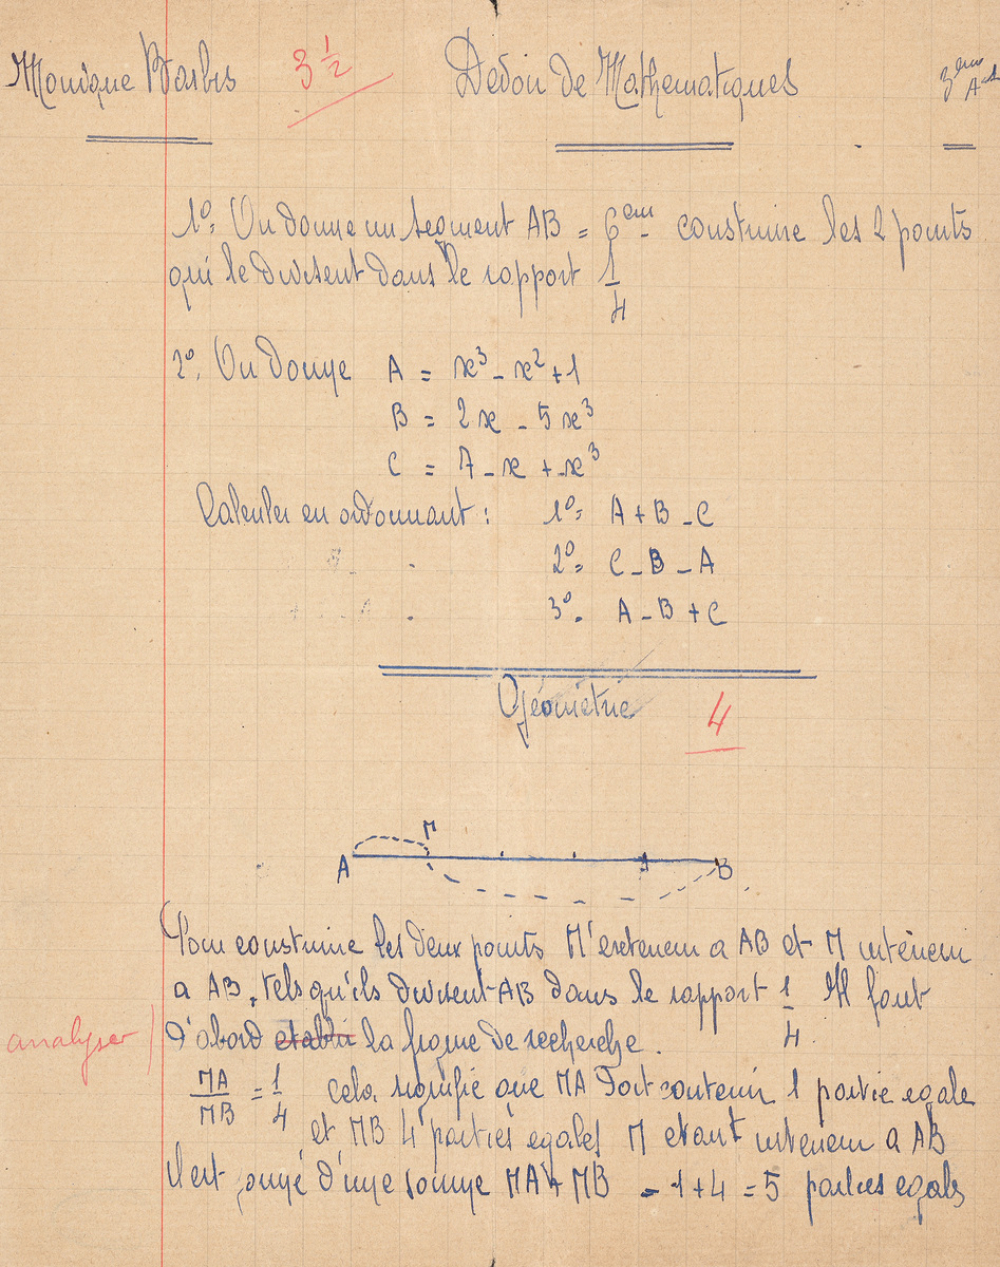 Monique Barbes 3 1/2 Devoir de Mathematiques 3ème A
1º= On donne un segment AB = 6 cm - construire les 2 points
qui le divisent dans le rapport 1/4
2º. On donne A = x³ - x² + 1
B = 2x - 5x³
C = 7 - x + x³
Calculer en ordonnant : 1º= A + B - C
2º= C - B - A
3º- A - B + C
Géométrie 4
M
A B
Pour construire les deux points M' exterieur a AB et M interieur
a AB, tels qu'ils divisent AB dans le rapport 1/4 Il faut
analyser d'abord etablir la figure de recherche.
MA/MB = 1/4 cela signifie que MA doit contenir 1 partie egale
et MB 4 parties egales M etant interieur a AB
Il est d'une somme MA + MB = 1 + 4 = 5 parties egales